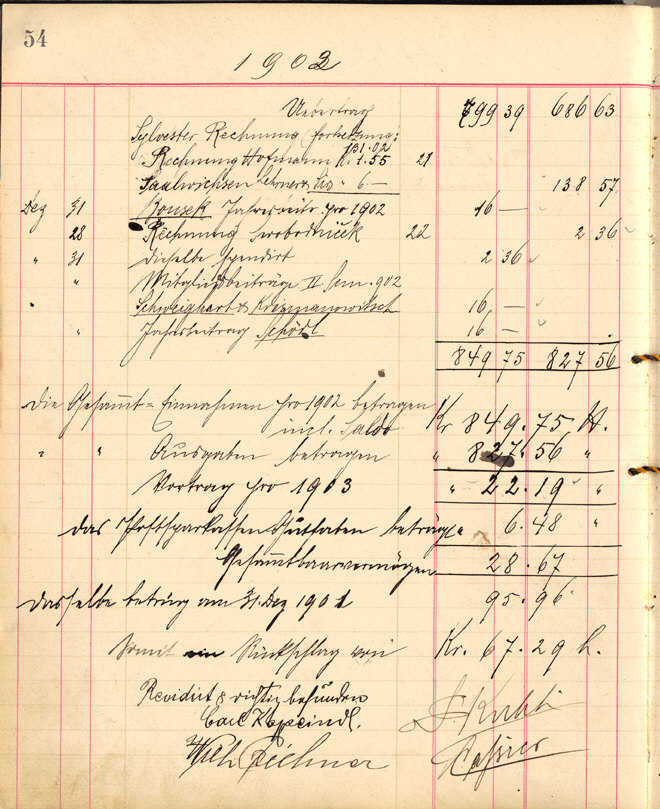 54
1902
Uebertrag 799 39 686 63
Sylvester Rechnung Fortsetzung:
Rechnung Hofmann K. 131.02 21
Saalwichsen 6.— 138 57
Dez 31 Kouzek Jahresbeitr. pro 1902 16 —
28 Rechnung Swobodnicek 22 2 36
" 31 dieselbe spendirt 2 36
" " Mitgliedbeiträge II Sem. 902
Schweighart & Krizmanowitsch 16 —
" Jahresbeitrag Schödl 16 —
849 75 827 56
Die Gesammt-Einnahmen pro 1902 betragen Kr 849.75 H.
incl. Saldo
" " Ausgaben betragen " 827.56 "
Vortrag pro 1903 " 22.19 "
Das Postsparkassen Guthaben beträgt " 6.48 "
Gesammtbaarvermögen 28.67
Dasselbe betrug am 31. Dez 1901 95.96
Somit ein Rückschlag von Kr. 67.29 h.
Revidirt & richtig befunden
Carl
Wilh.